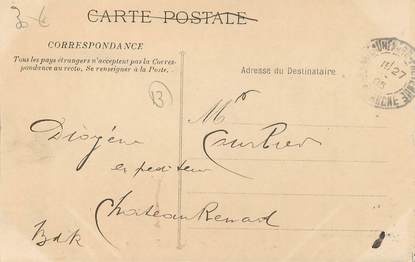 30 €
CARTE POSTALE
CORRESPONDANCE
Tous les pays étrangers n'acceptent pas la Corres-
pondance au recto. Se renseigner à la Poste.
Adresse du Destinataire
13
Mr
Diogène
expéditeur
Chateau Renard
Bdk
27